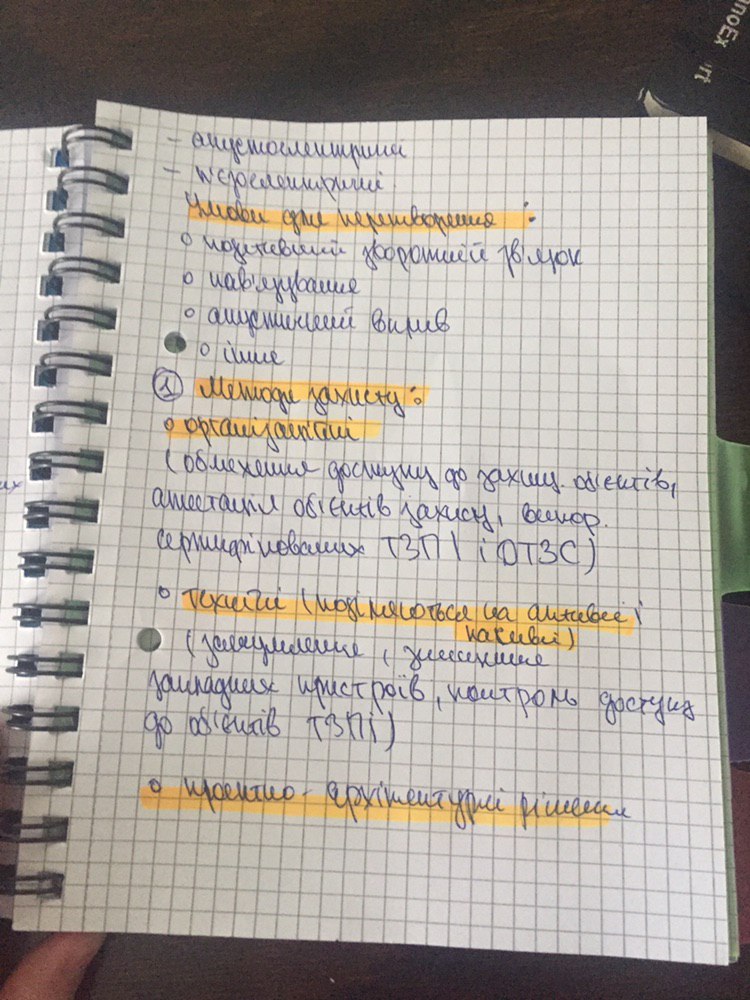 - акустоелектричні
- п'єзоелектричні
Умови для перетворення:
○ позитивний зворотній зв'язок
○ нав'язування
○ акустичний вплив
○ інше
① Методи захисту:
○ організаційні
(обмеження доступу до захищ. об'єктів,
атестація об'єктів захисту, викор.
сертифікованих ТЗПІ і ОТЗС)
○ технічні (поділяються на активні і
пасивні)
(зашумлення, знищення
закладних пристроїв, контроль доступу
до об'єктів ТЗПІ)
○ проектно-архітектурні рішення